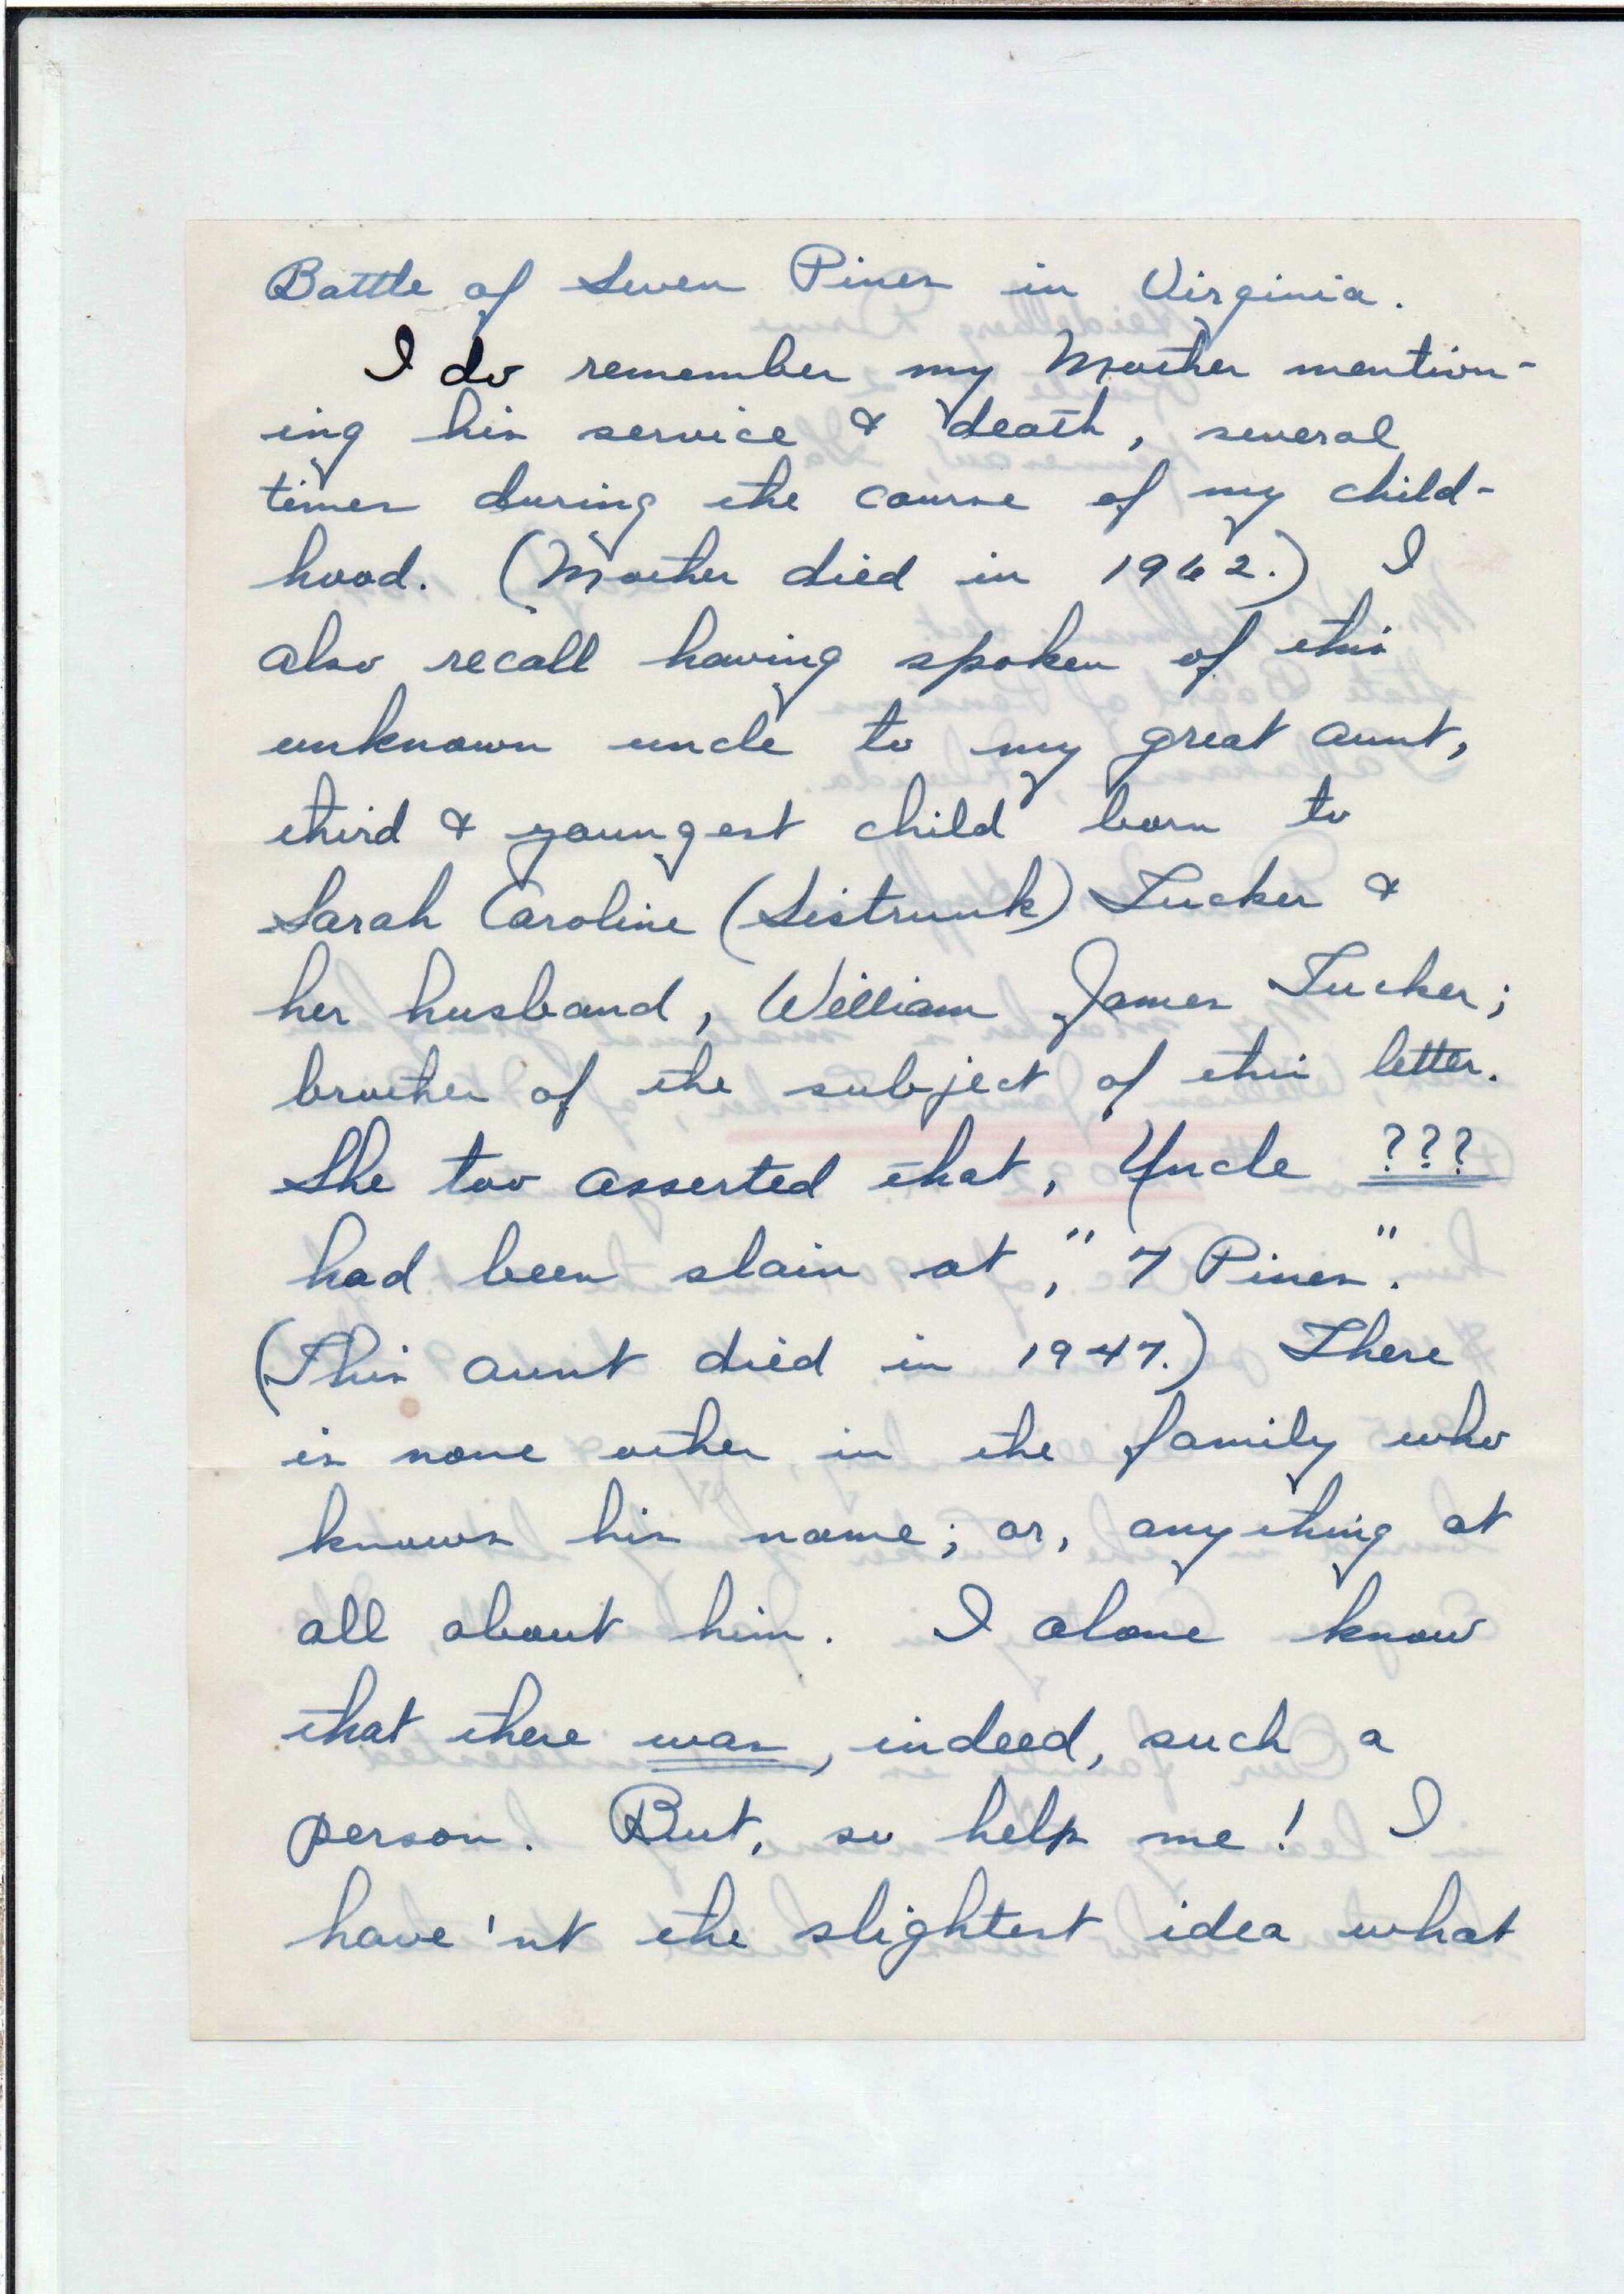 Battle of Seven Pines in Virginia.
I do remember my Mother mention-
ing his service & death, several
times during the course of my child-
hood. (Mother died in 1962.) I
also recall having spoken of this
unknown uncle to my great aunt,
third & youngest child born to
Sarah Caroline (Sistrunk) Tucker &
her husband, William James Tucker;
brother of the subject of this letter.
She too asserted that, Uncle ???
had been slain at, "7 Pines".
(This aunt died in 1947.) There
is none other in the family who
knows his name; or, anything at
all about him. I alone know
that there was, indeed, such a
person. But, so help me! I
have'nt the slightest idea what